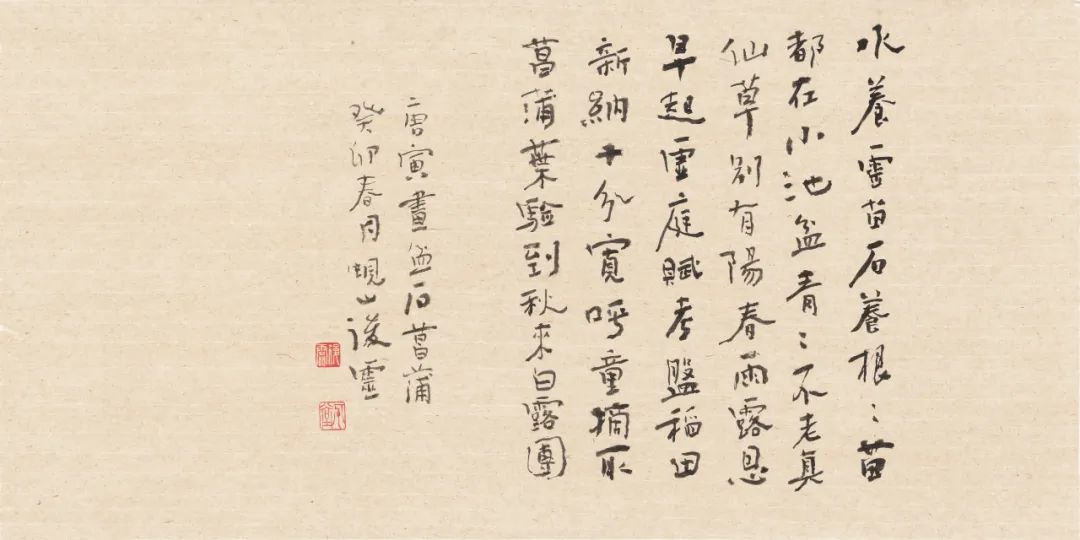 水養靈苗石養根〻苗
都在小池盆青〻不老真
仙草別有陽春雨露恩
早起虛庭賦考盤稻田
新納十分寬呼童摘取
菖蒲葉驗到秋來白露團
唐寅畫盆石菖蒲
癸卯春月蜆山靈